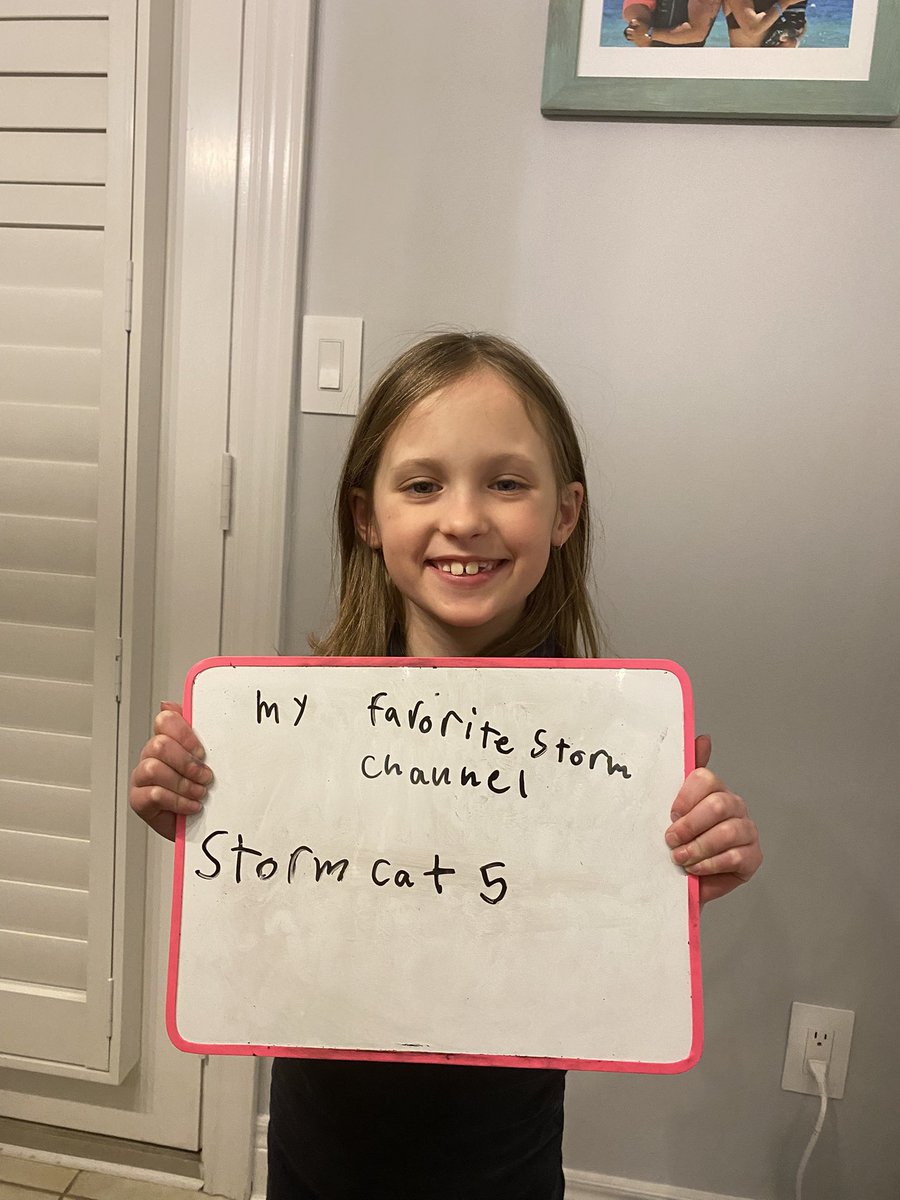 my favorite Storm
channel
Storm cat 5